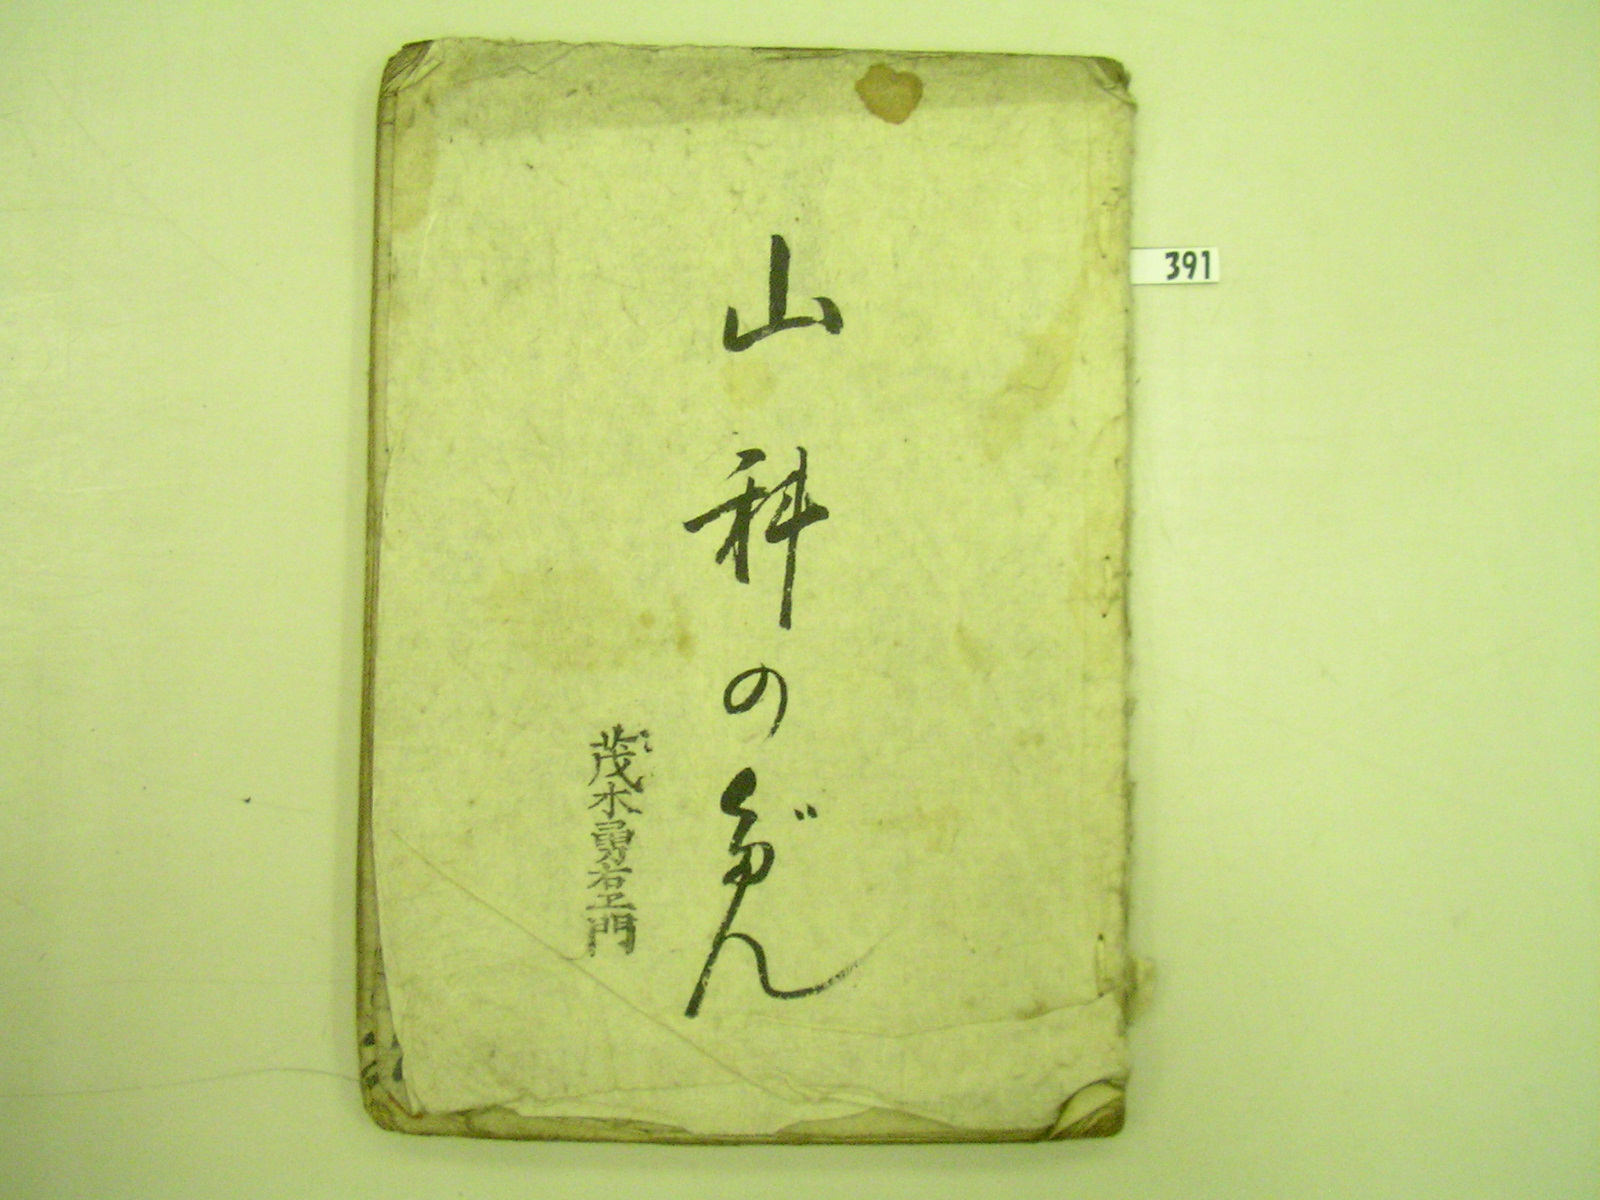 山科のだん
茂木勇右エ門
391